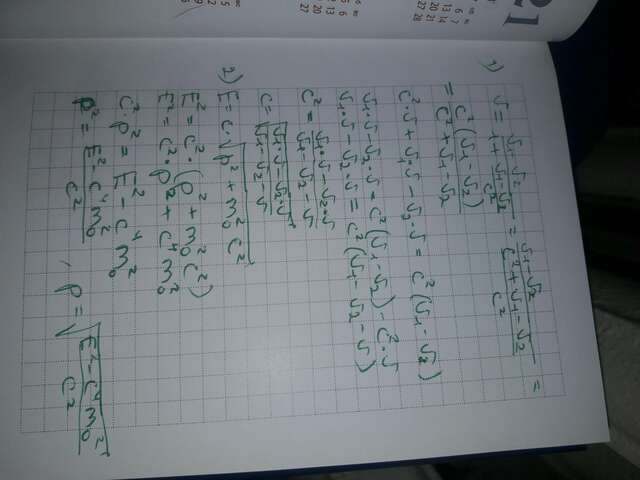 21
1) v = v₁-v₂ / 1+ v₁-v₂/c² = v₁-v₂ / c²+v₁-v₂/c² =
= c²(v₁-v₂) / c²+v₁-v₂
c²·v + v₁v - v₂·v = c²(v₁-v₂)
v₁·v - v₂·v = c²(v₁-v₂) - c²·v
v₁·v - v₂·v = c²(v₁-v₂-v)
c² = v₁·v-v₂·v / v₁-v₂-v
c = √(v₁·v-v₂·v / v₁-v₂-v)
2) E = c·√(p²+m₀²c²)
E² = c²·(p²+m₀²c²)
E² = c²·p²+c⁴m₀²
c²p² = E²-c⁴m₀²
p² = E²-c⁴m₀² / c² , p = √(E²-c⁴m₀² / c²)